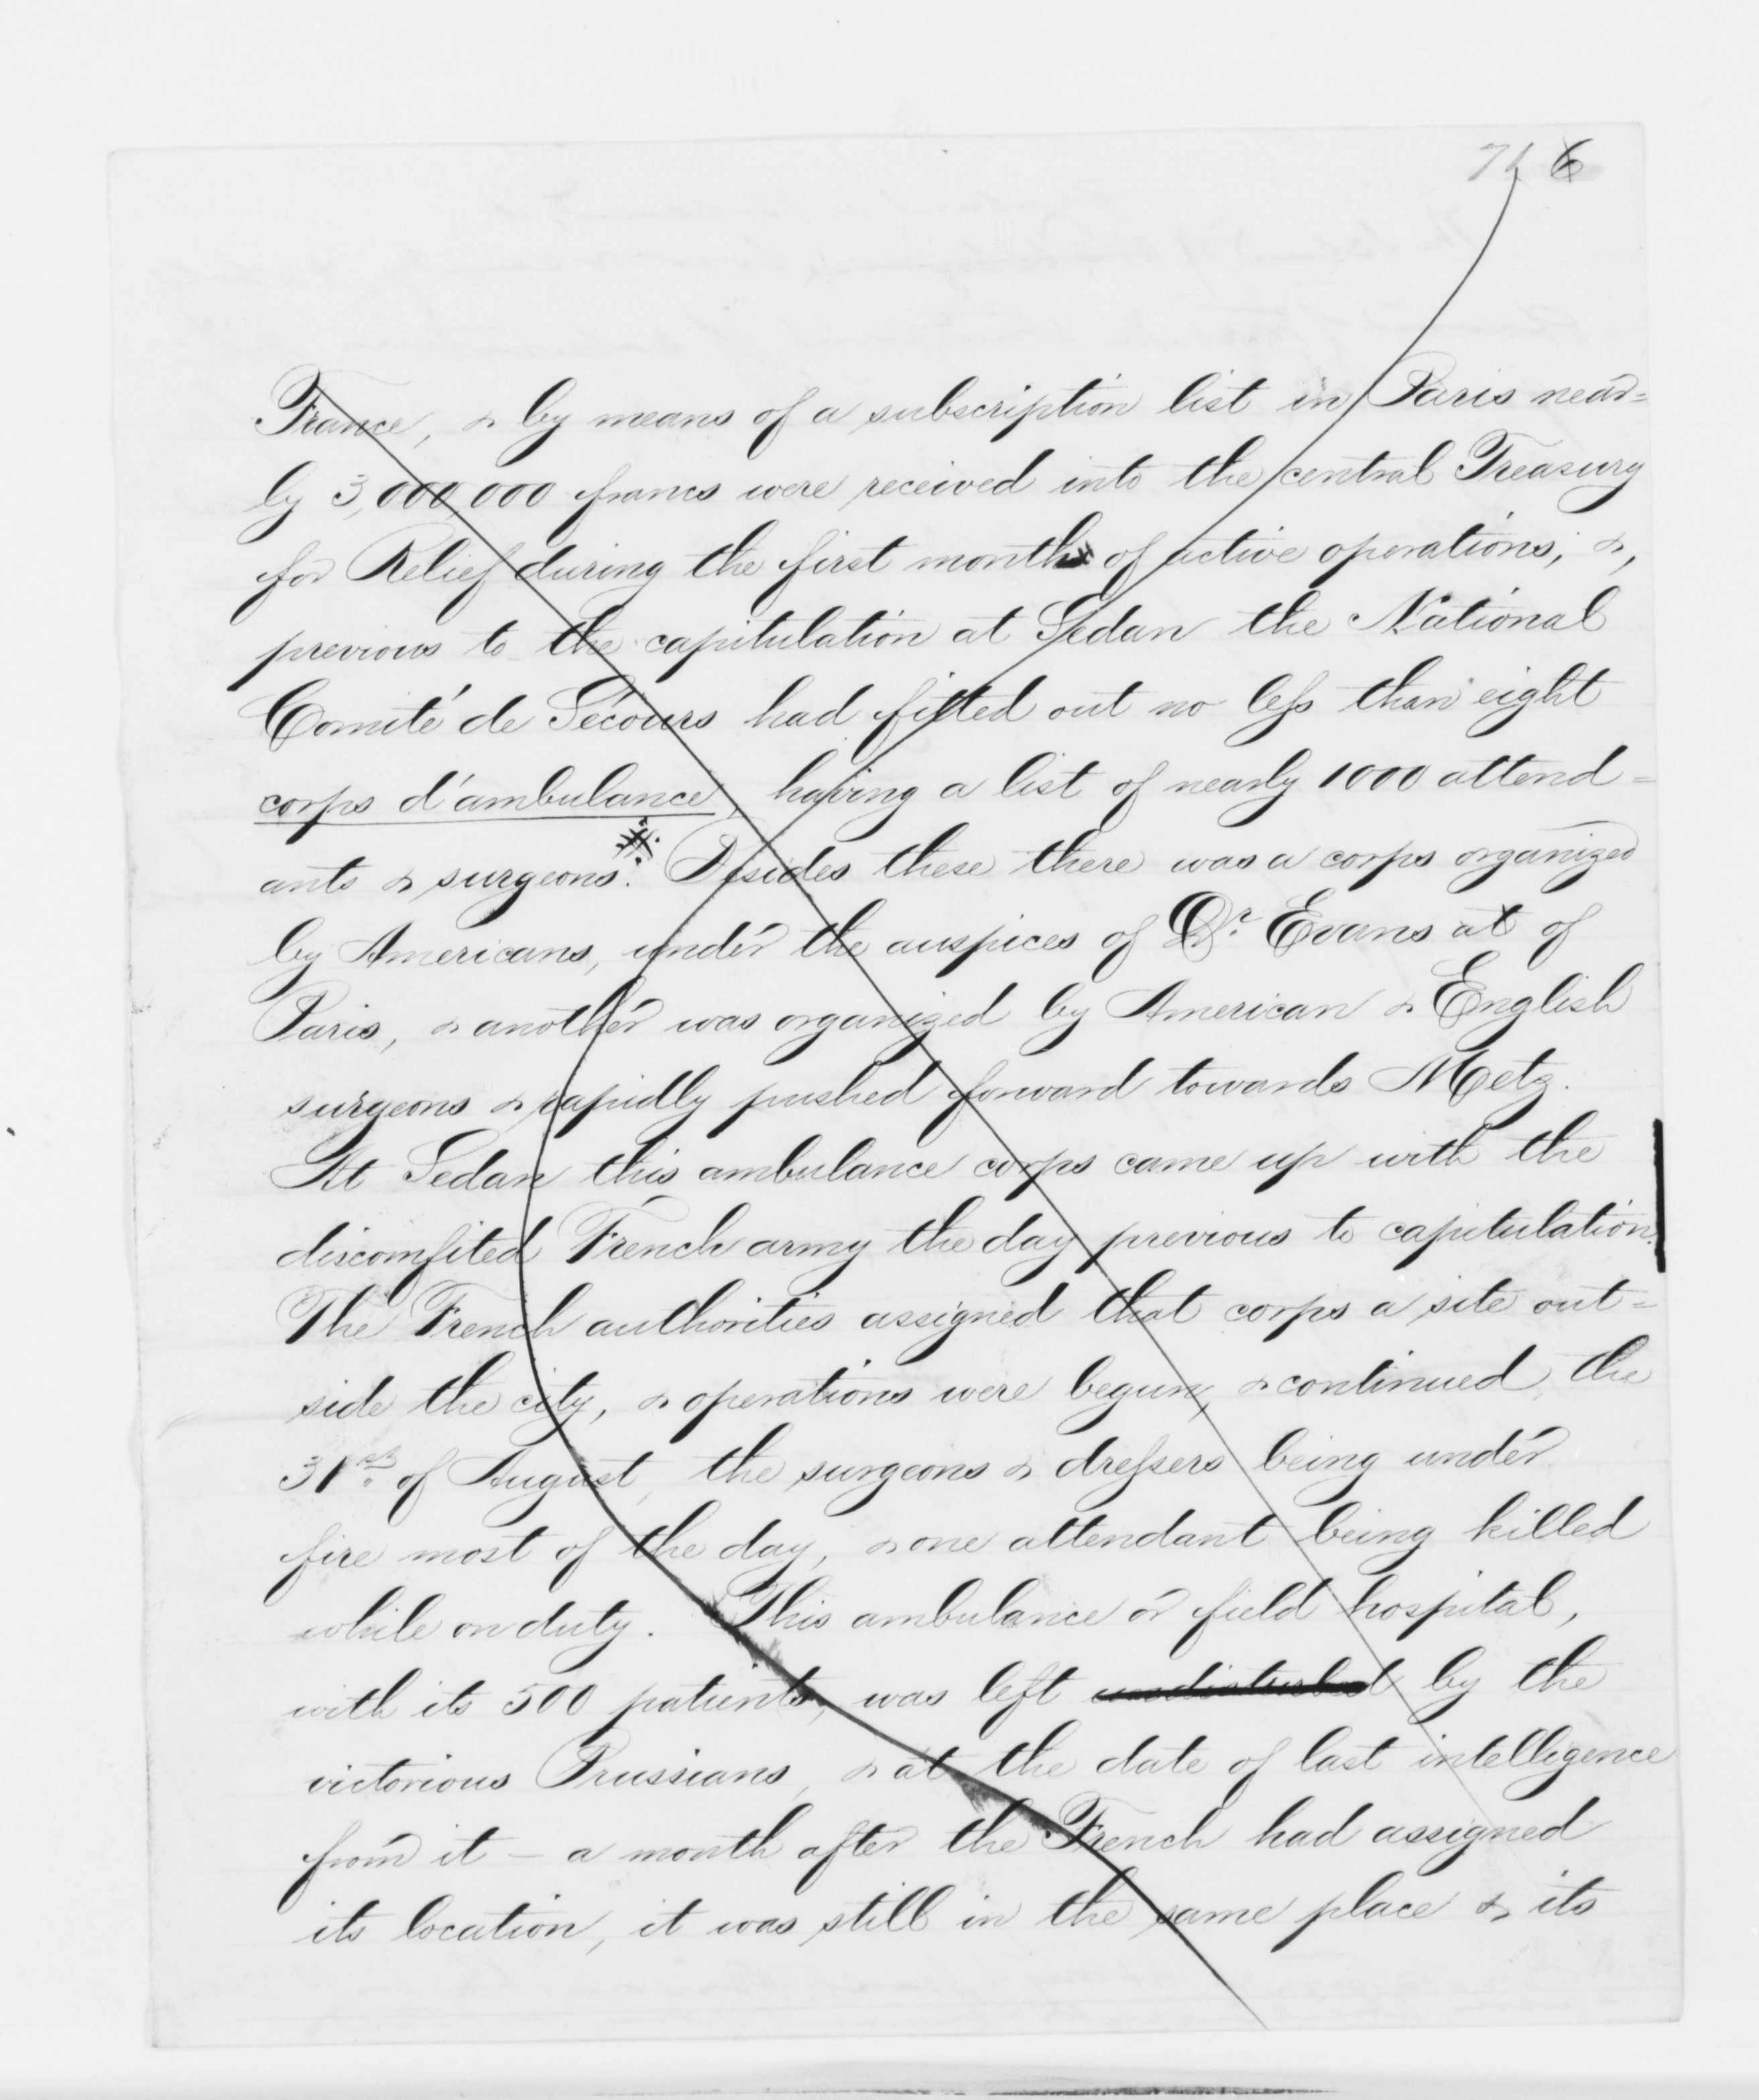 6
France, & by means of a subscription list in Paris near=
ly 3,000,000 francs were received into the central Treasury
for Relief during the first month of active operations; &,
previous to the capitulation at Sedan the National
Comité de Sécours had fitted out no less than eight
corps d'ambulance, having a list of nearly 1000 attend=
ants & surgeons. Besides these there was a corps organized
by Americans, under the auspices of Dr. Evans at of
Paris, & another was organized by American & English
surgeons & rapidly pushed forward towards Metz.
At Sedan this ambulance corps came up with the
discomfited French army the day previous to capitulation.
The French authorities assigned that corps a site out=
side the city, & operations were begun, & continued, the
31st of August, the surgeons & dressers being under
fire most of the day, & one attendant being killed
while on duty. This ambulance or field hospital,
with its 500 patients, was left undisturbed by the
victorious Prussians, & at the date of last intelligence
from it – a month after the French had assigned
its location, it was still in the same place & its